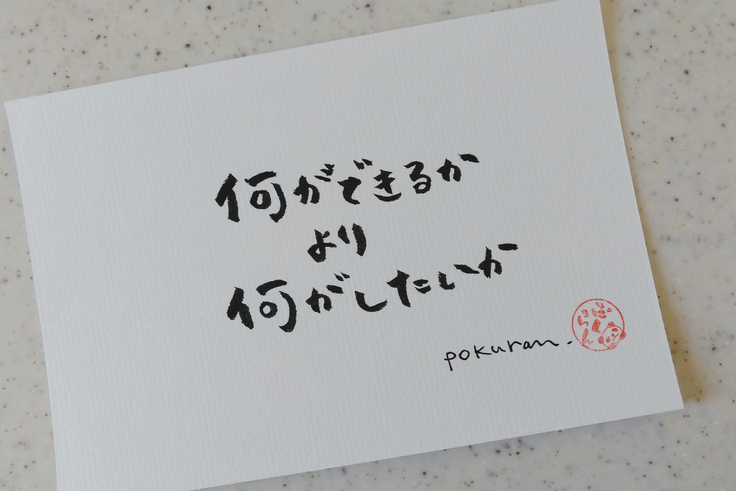 何ができるか
より
何がしたいか
pokuran.
ぽくらん